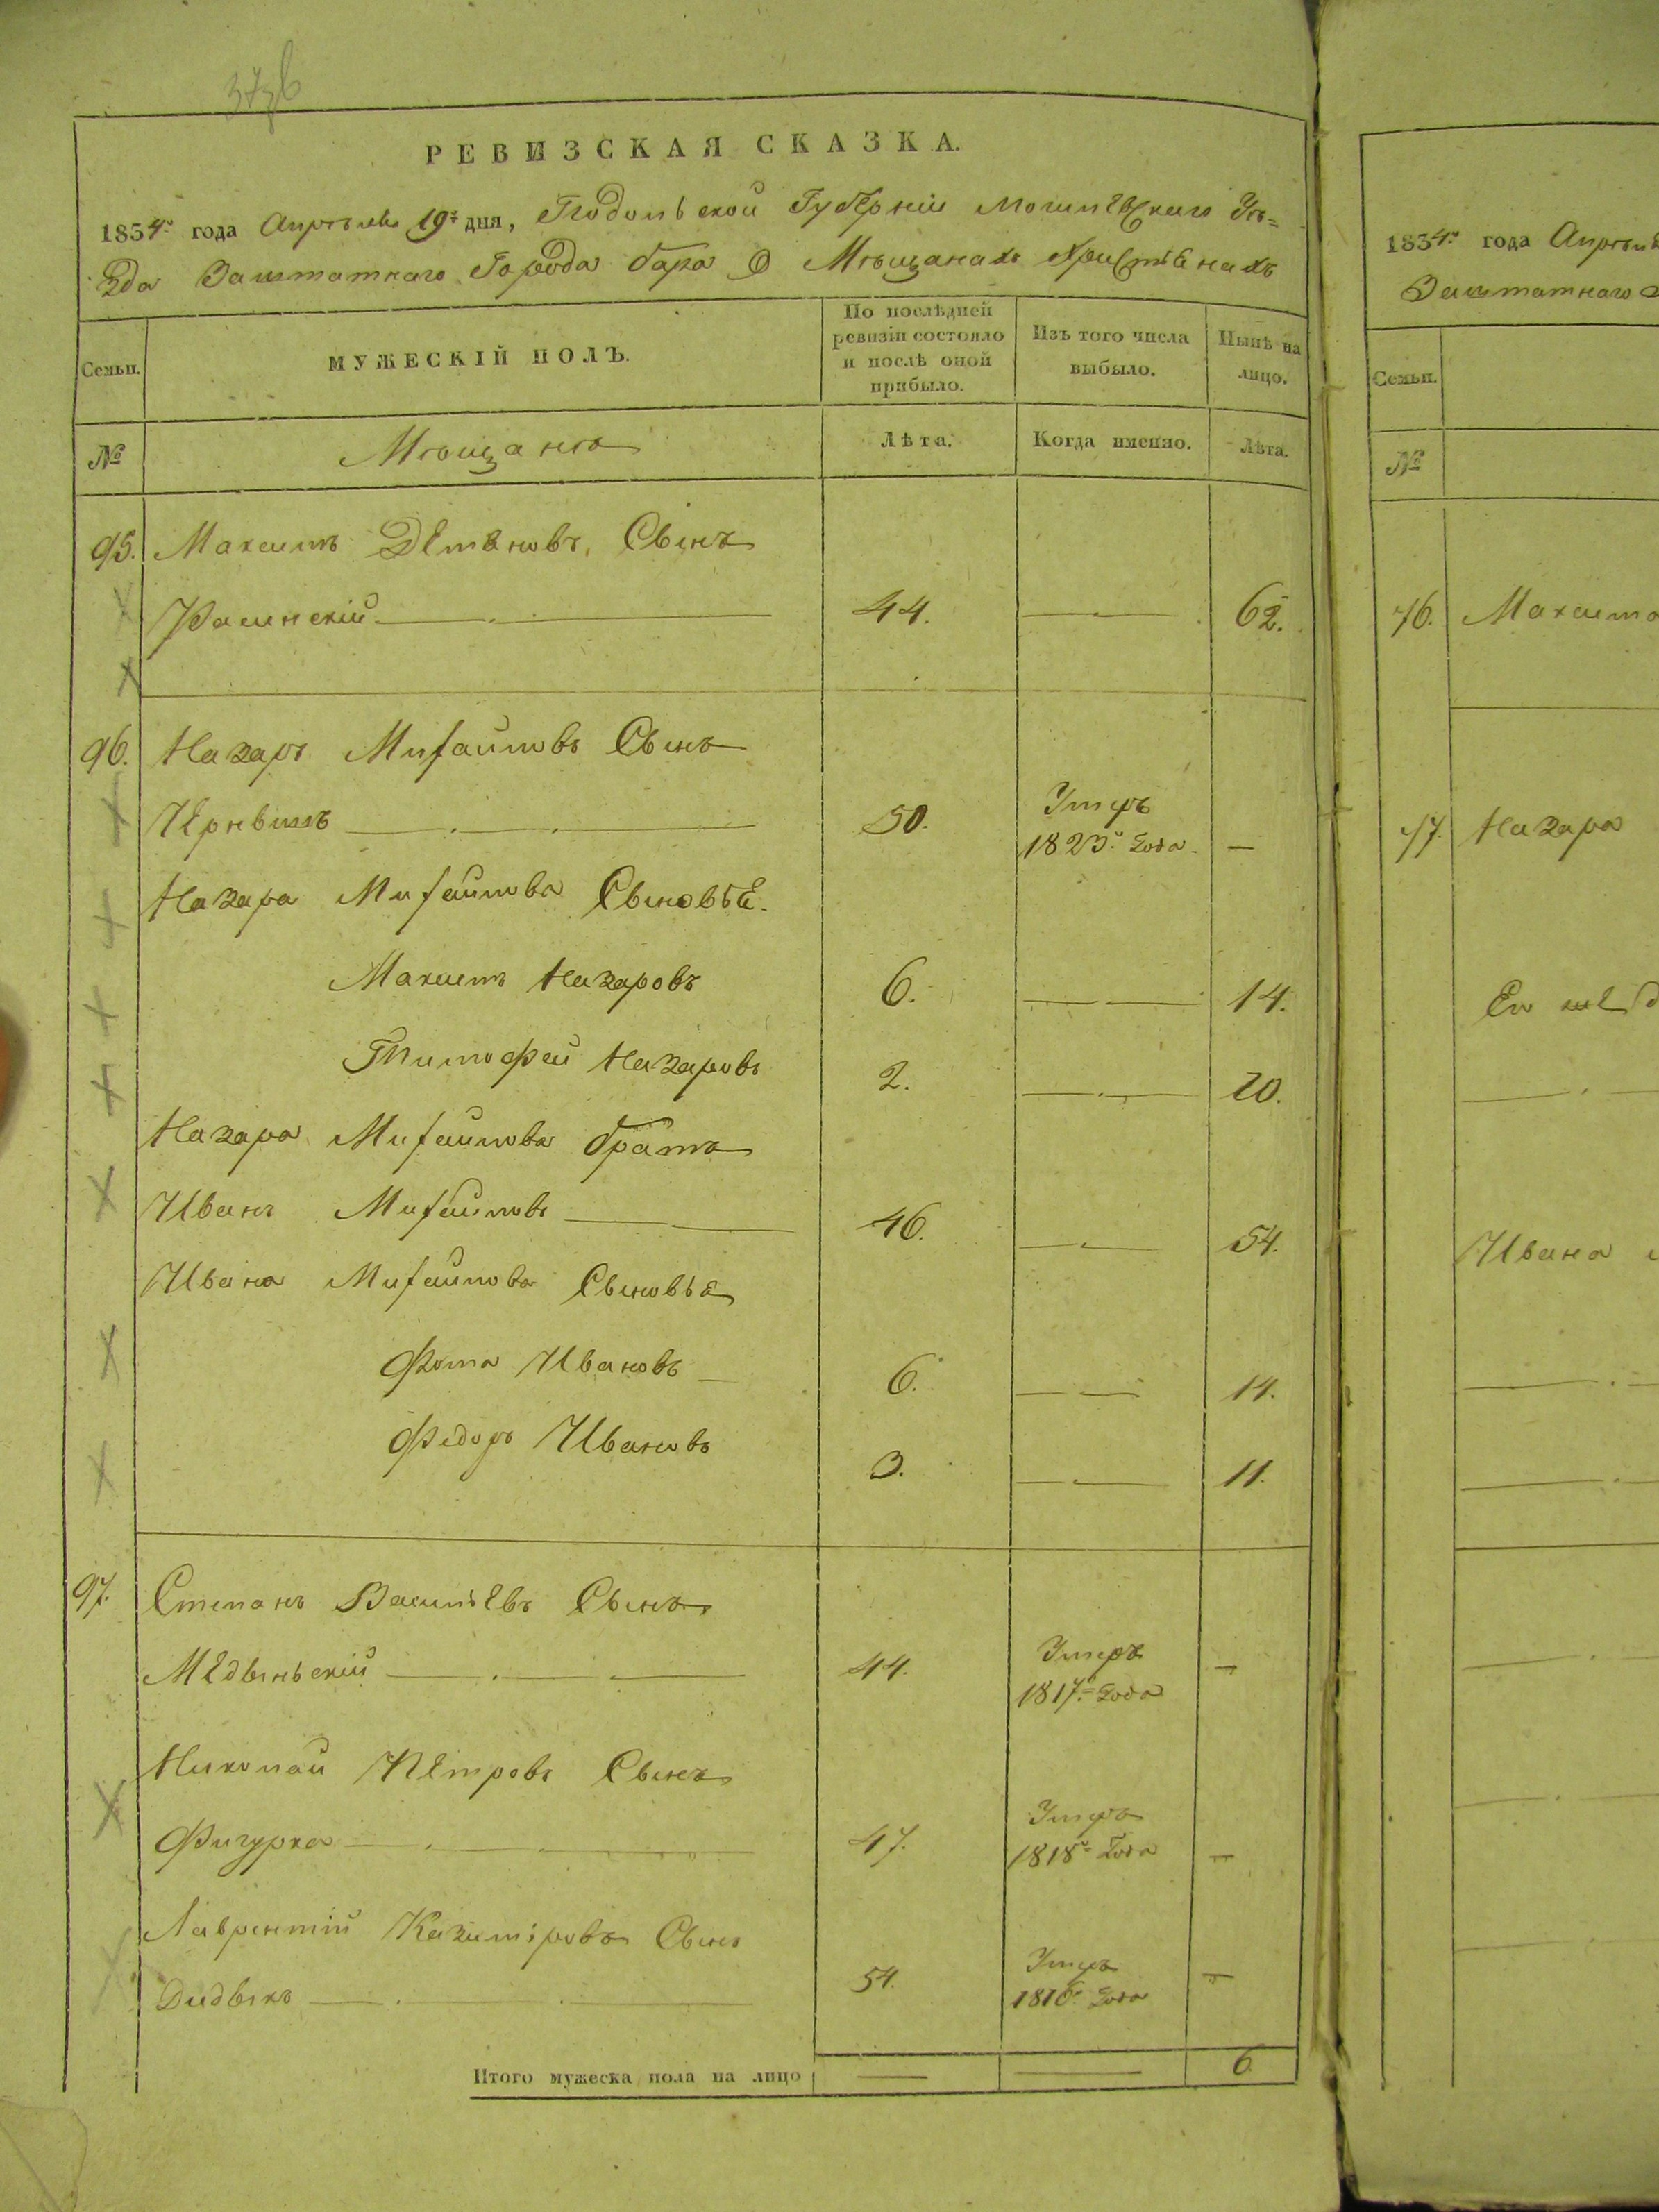 РЕВИЗСКАЯ СКАЗКА.
1834го года Апрѣля 19го дня, Подольской Губерніи Могилевскаго Уѣ=
зда Заштатнаго Города Бара О Мѣщанахъ Христіанахъ
Семьи.
МУЖЕСКІЙ ПОЛЪ.
По послѣдней ревизіи состояло и послѣ оной прибыло.
Изъ того числа выбыло.
Нынѣ на лицо.
№
Мѣщане
Лѣта.
Когда именно.
Лѣта.
95. Максимъ Сынъ
44. 62.
96. Назаръ Михайловъ Сынъ
Чернышъ 50. Умеръ 1823го года —
Назара Михайлова Сыновья.
Максимъ Назаровъ 6. 14.
Тимофей Назаровъ 2. 10.
Назара Михайлова братъ
Иванъ Михайловъ 46. 54.
Ивана Михайлова Сыновья
Фома Ивановъ 6. 14.
Федоръ Ивановъ 3. 11.
97. Степанъ Васильевъ Сынъ
Медвѣньскій 44. Умеръ 1817го года —
Николай Петровъ Сынъ
Фигурка 47. Умеръ 1818го года —
Лаврентій Казиміровъ Сынъ
Дидыкъ 54. Умеръ 1816го года —
Итого мужеска пола на лицо — — 6
1834го года
Заштатнаго
Семьи.
№
76. Максима
77. Назара
Его
Ивана